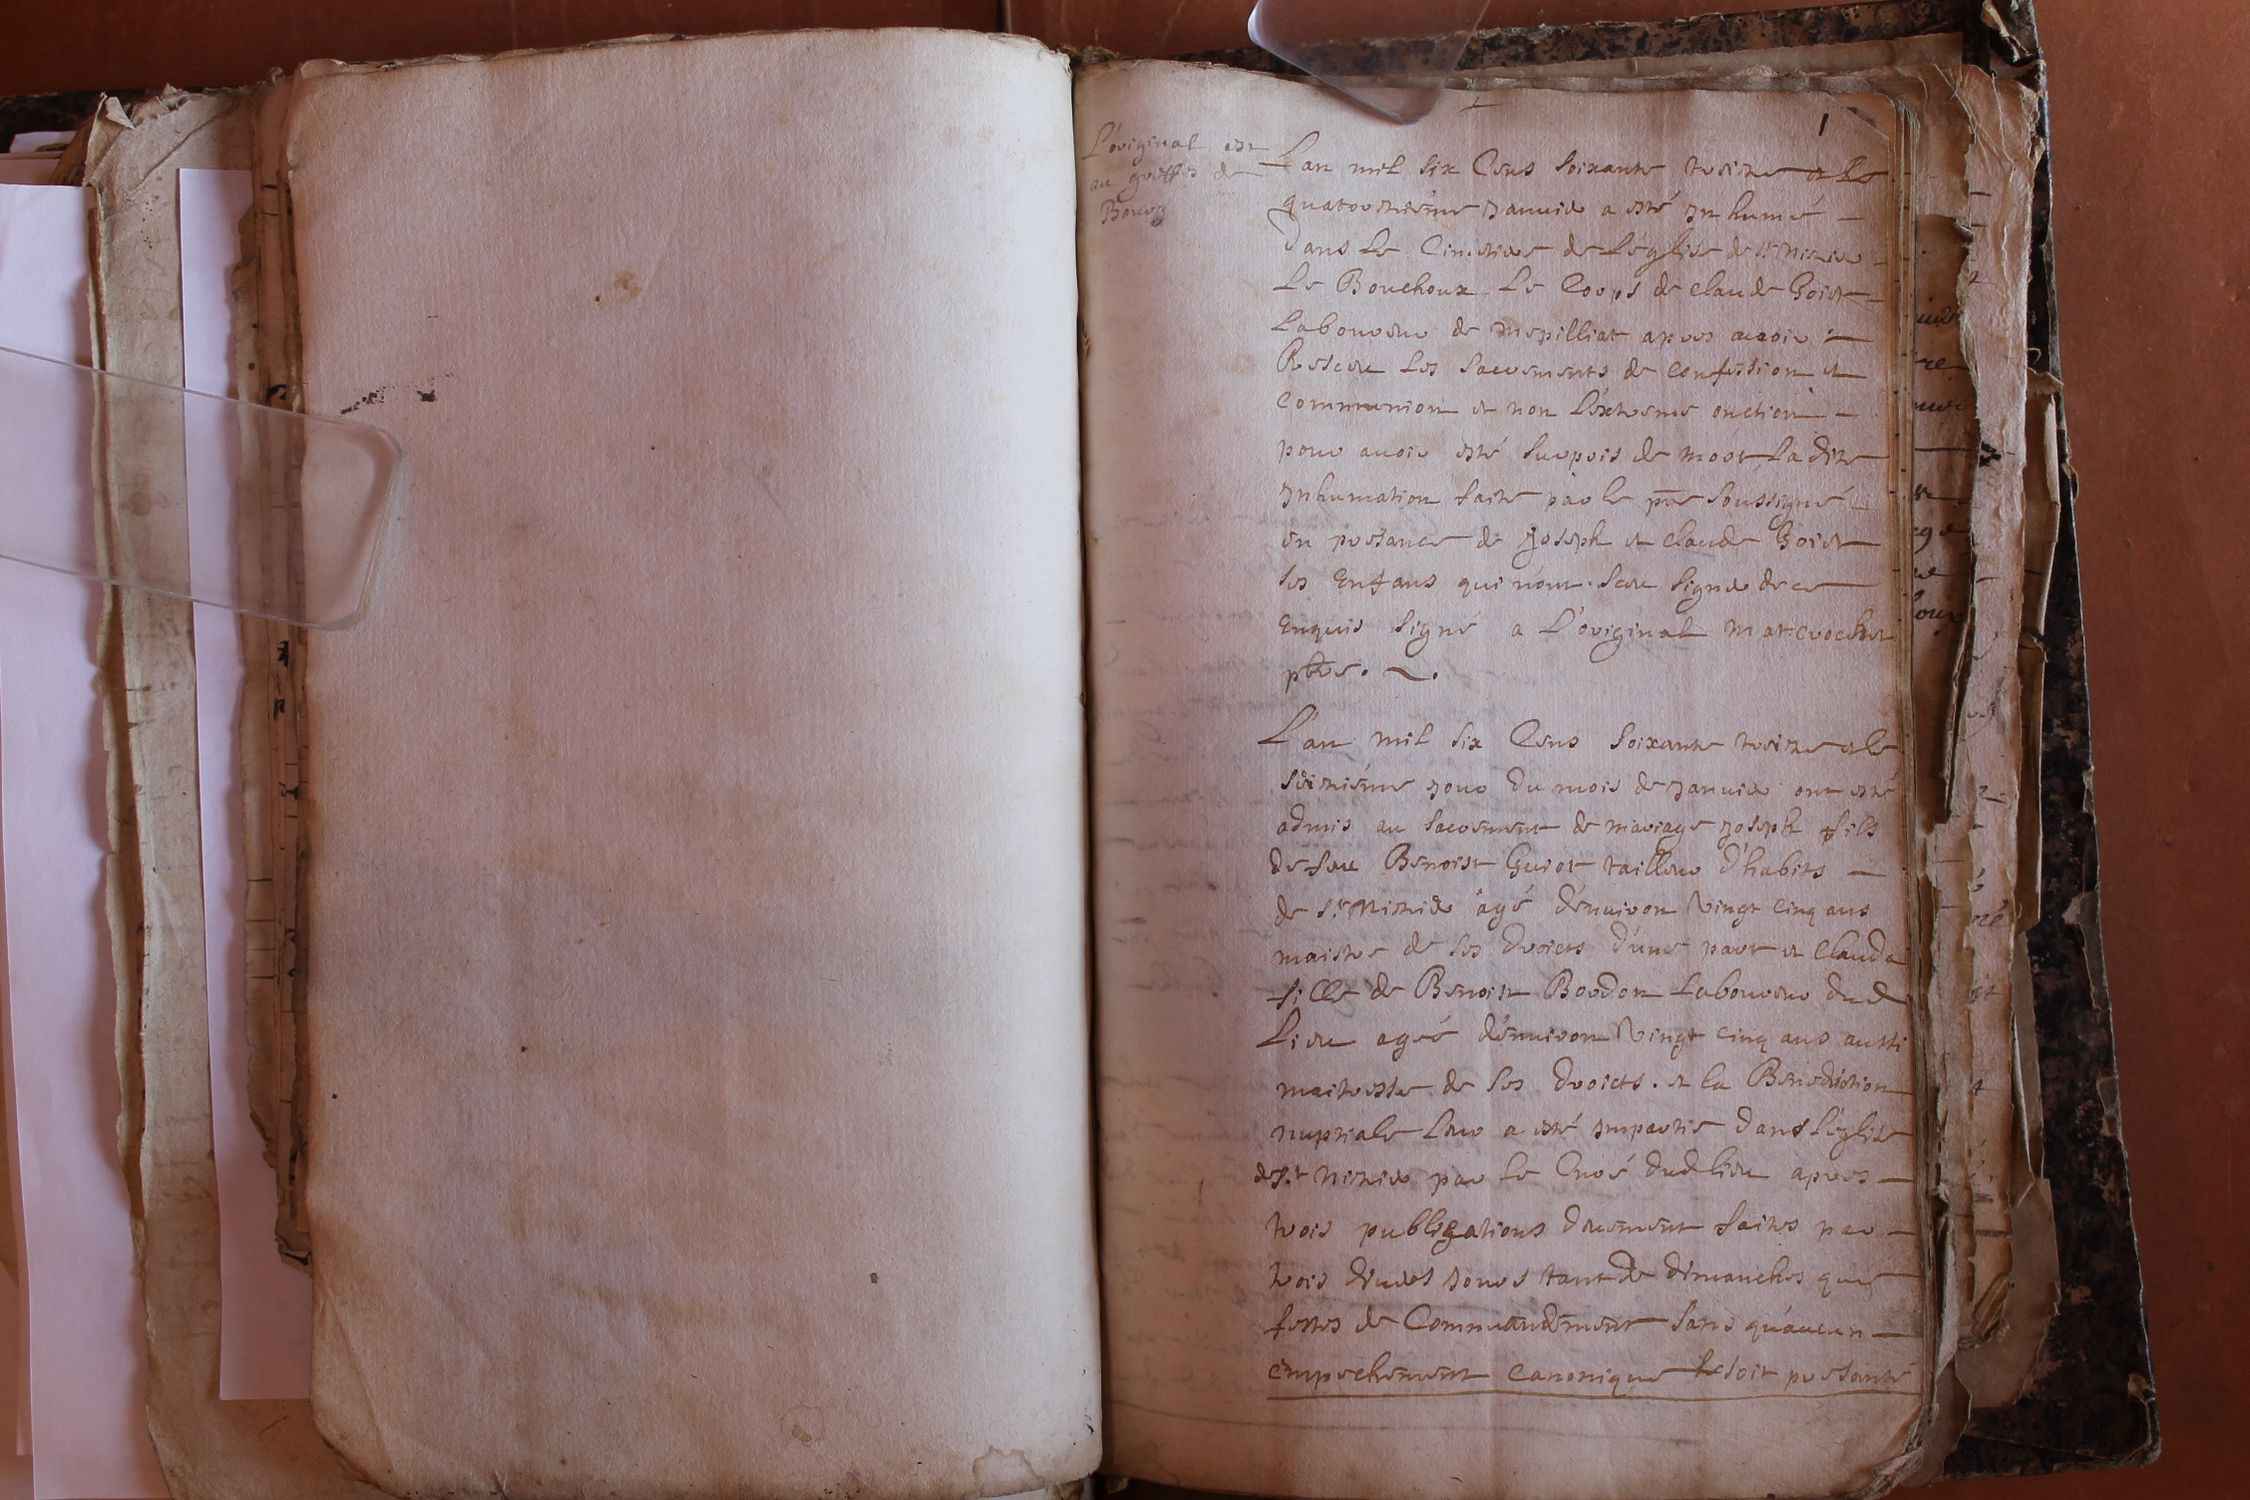 L'original est
au greffe de
Bourg
1
L'an mil six Cens soixante treize et le
quatorzième Janvier a esté Inhumé
dans le Cimetiere de L'eglise de st Nizier
Le Bouchoux Le Corps de claude Goiet
Laboureur de mepilliat apres avoir
Resceu Les sacrements de confession et
communion et non L'extreme onction
pour avoir esté surpris de mort La dite
Inhumation faite par le pre soussigné
en presance de Joseph et claude Goiet
ses Enfans qui n'ont sceu signer de ce
Enquis signé a L'original Marcrochet
pbre.
L'an mil six Cens soixante treize et le
seizième jour du mois de Janvier ont esté
admis au sacrement de mariage Joseph fils
de feu Benoist Guiot tailleur d'habits
de st Nizier agé d'environ Vingt cinq ans
maistre de ses droicts d'une part et Clauda
fille de Benoist Bordon Laboureur dud
Lieu agée d'environ Vingt cinq ans aussi
maitresse de ses droicts. et la Benediction
nuptiale Leur a esté Impartie dans L'église
de st Nizier par Le Curé dud lieu apres
trois publigations deuement faites par
trois divers Jours tant de dimanches que
festes de Commandement sans qu'aucun
empechement canonique se soit presanté